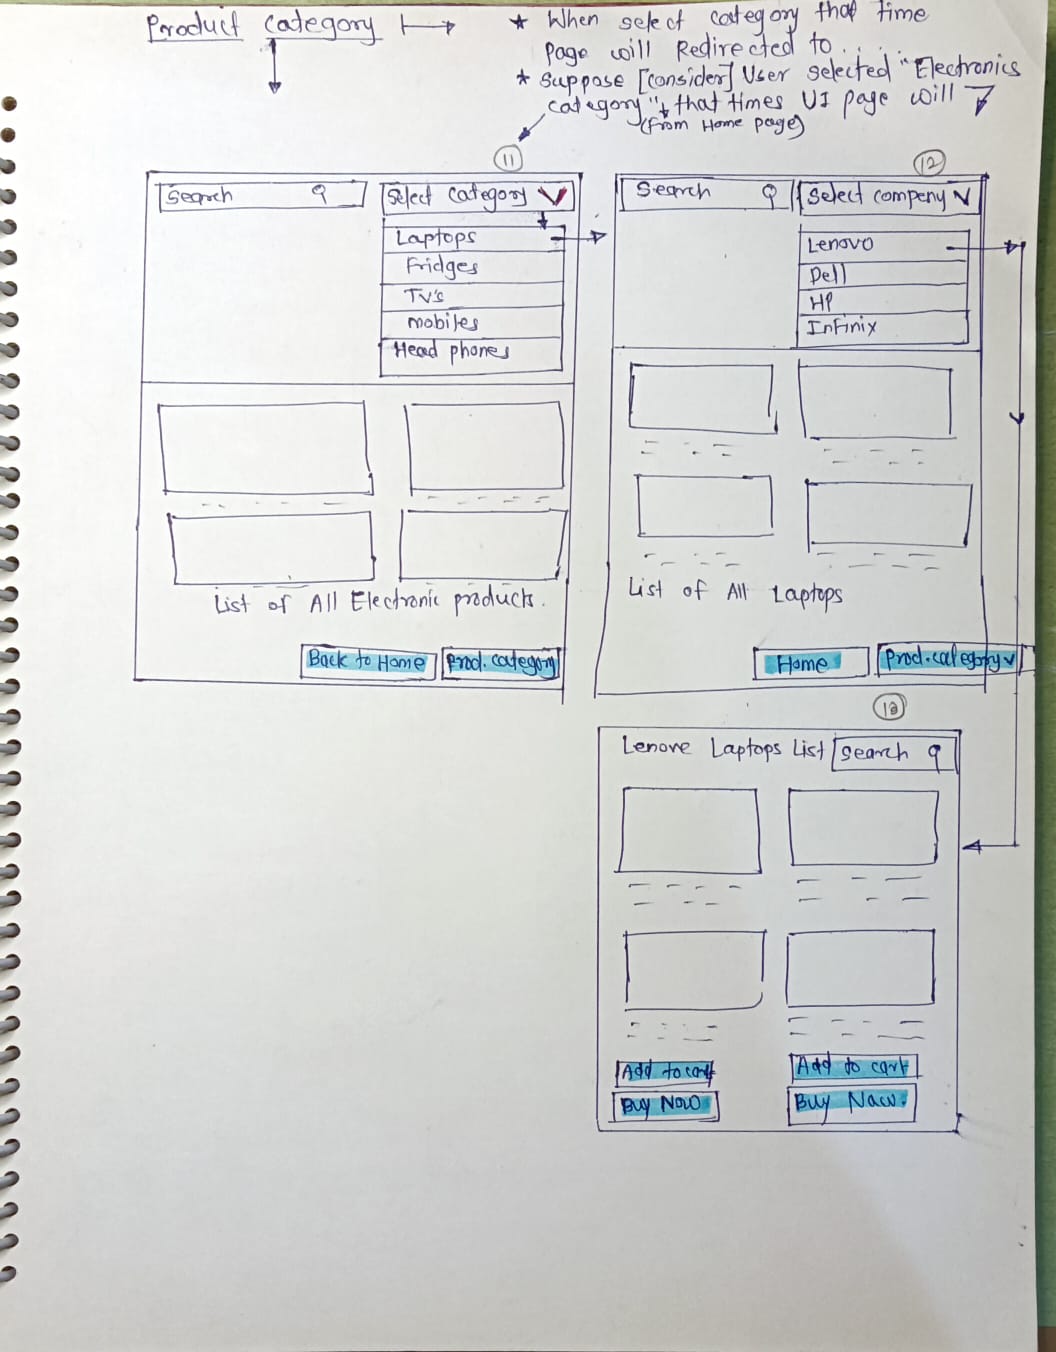 Product Category
* When select category that time
Page will Redirected to....
* Suppose [consider] User selected "Electronics
category", that times UI page will
(From Home page)
11
Search
Select Category
Laptops
Fridges
TV's
mobiles
Head phones
List of All Electronic products.
Back to Home
Prod. category
12
Search
Select compeny
Lenovo
Dell
HP
Infinix
List of All Laptops
Home
Prod. category
Lenove Laptops List
Search
Add to cart
Buy Now
Add to cart
Buy Now.